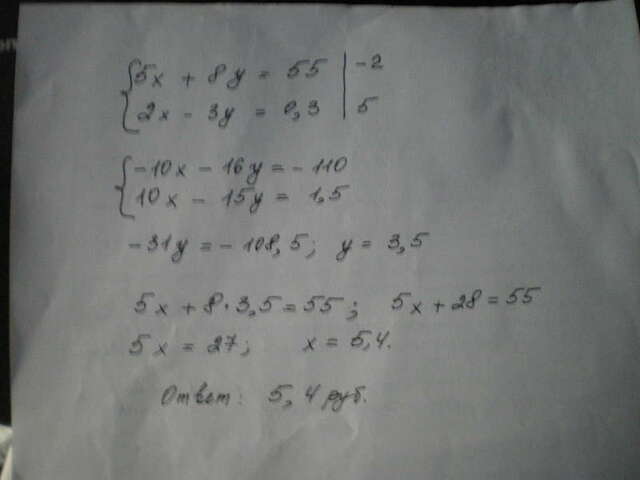 5x + 8y = 55 | -2
2x - 3y = 0,3 | 5
-10x - 16y = - 110
10x - 15y = 1,5
-31y = - 108,5; y = 3,5
5x + 8·3,5 = 55; 5x + 28 = 55
5x = 27; x = 5,4.
Ответ: 5,4 руб.